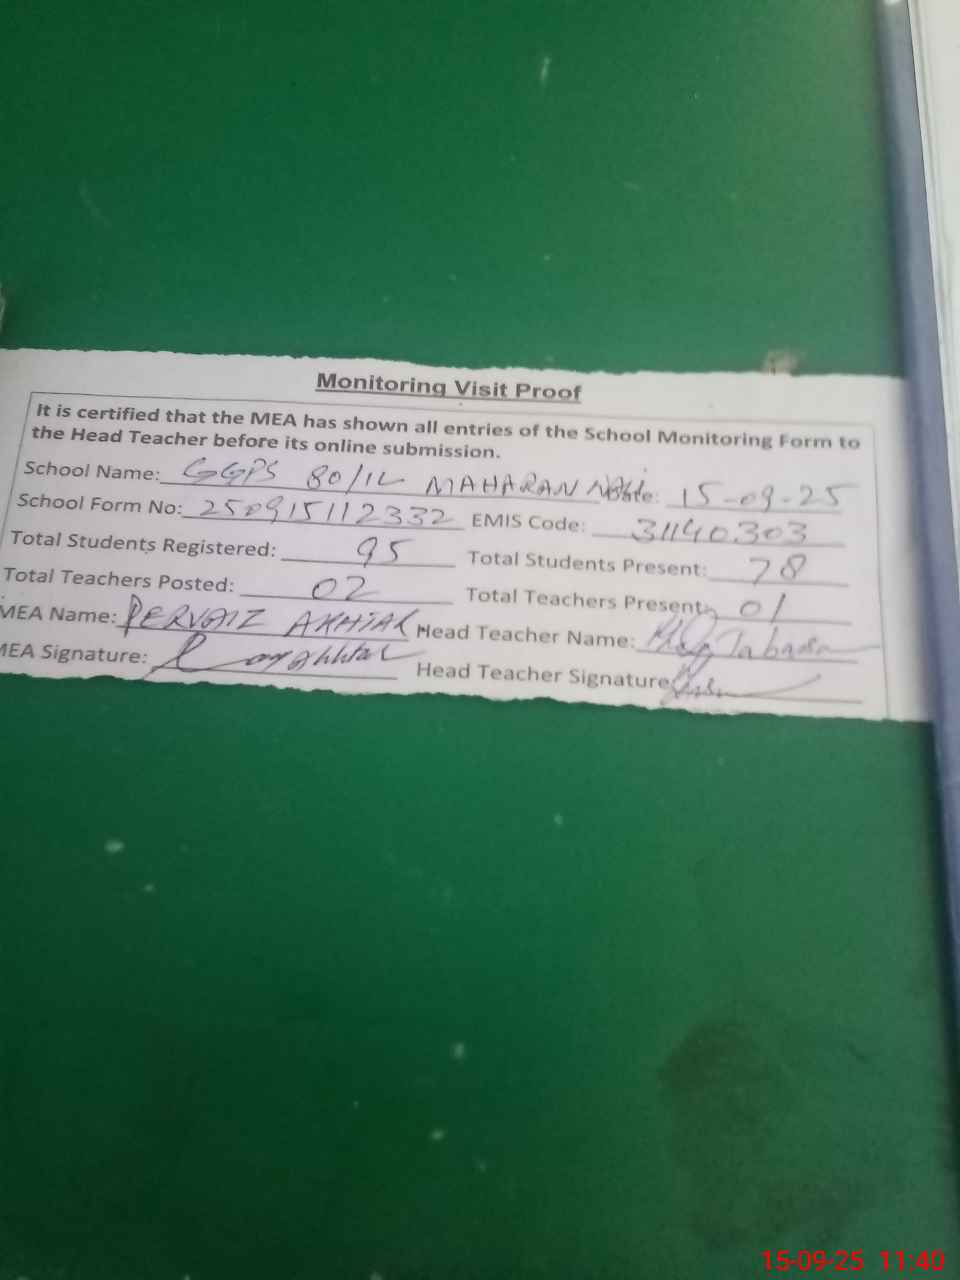 Monitoring Visit Proof
It is certified that the MEA has shown all entries of the School Monitoring Form to
the Head Teacher before its online submission.
School Name: GGPS 80/1L MAHARAN Date: 15-09-25
School Form No: 250915112332 EMIS Code: 31140303
Total Students Registered: 95 Total Students Present: 78
Total Teachers Posted: 02 Total Teachers Present: 01
MEA Name: PERVAIZ AKHTAR Head Teacher Name:
MEA Signature: Head Teacher Signature
15-09-25 11:40